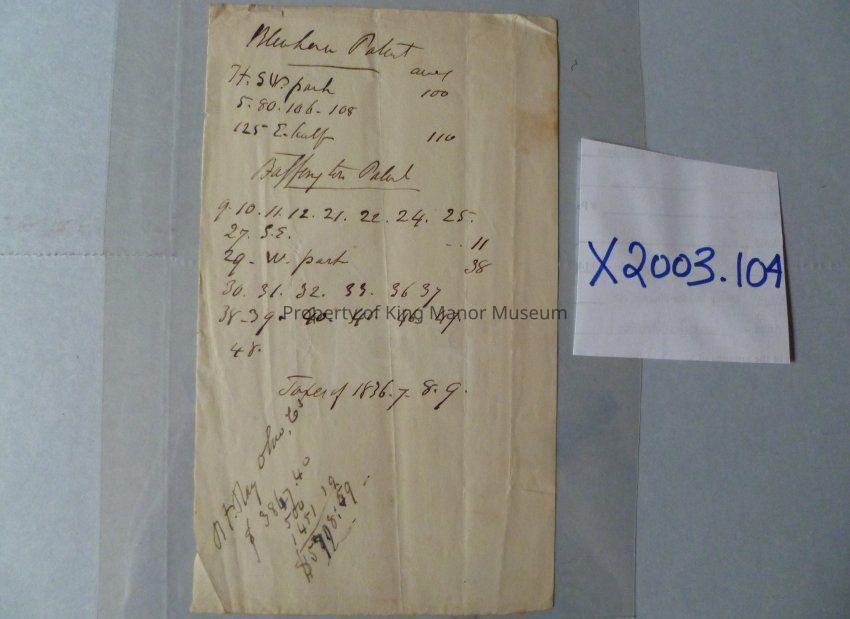 Blenheim Patent
acres
74. S.W. part 100
5. 80. 106. 108
125 E. half 110
Buffington Patent
9. 10. 11. 12. 21. 22. 24. 25.
27. S.E. 11
29 - W. part 38
30. 31. 32. 33. 36 37
38 - 39 - 47.
48.
Property of King Manor Museum
Taxes of 1836. 7. 8. 9.
Ohio,
$ 3867.40
500
X2003.104